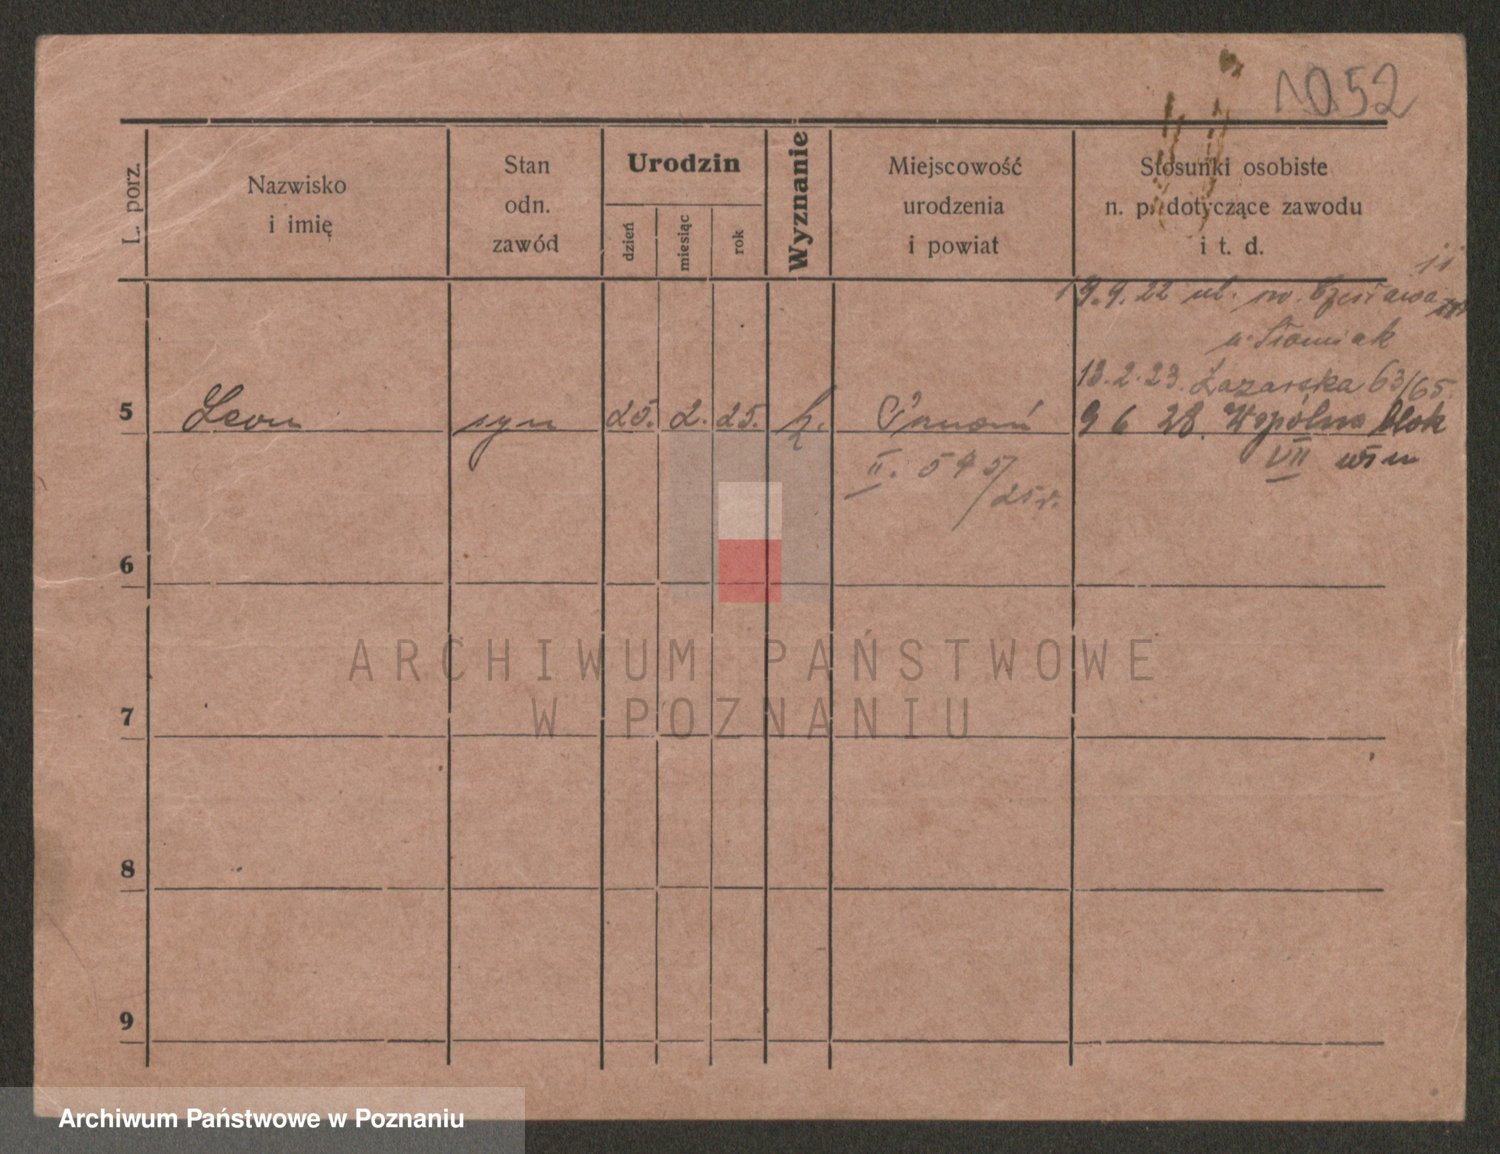 1052
L. porz.
Nazwisko
i imię
Stan
odn.
zawód
Urodzin
dzień
miesiąc
rok
Wyznanie
Miejscowość
urodzenia
i powiat
Stosunki osobiste
n. p. dotyczące zawodu
i t. d.
11
19.9.22 ul. św. Czesława
13.2.23. Łazarska 63/65.
5 Leon syn 25. 2. 25. k. Poznań 9 6 28. Wspólna blok
VII
II. 595/25r.
6
7
8
9
ARCHIWUM PAŃSTWOWE
W POZNANIU
Archiwum Państwowe w Poznaniu